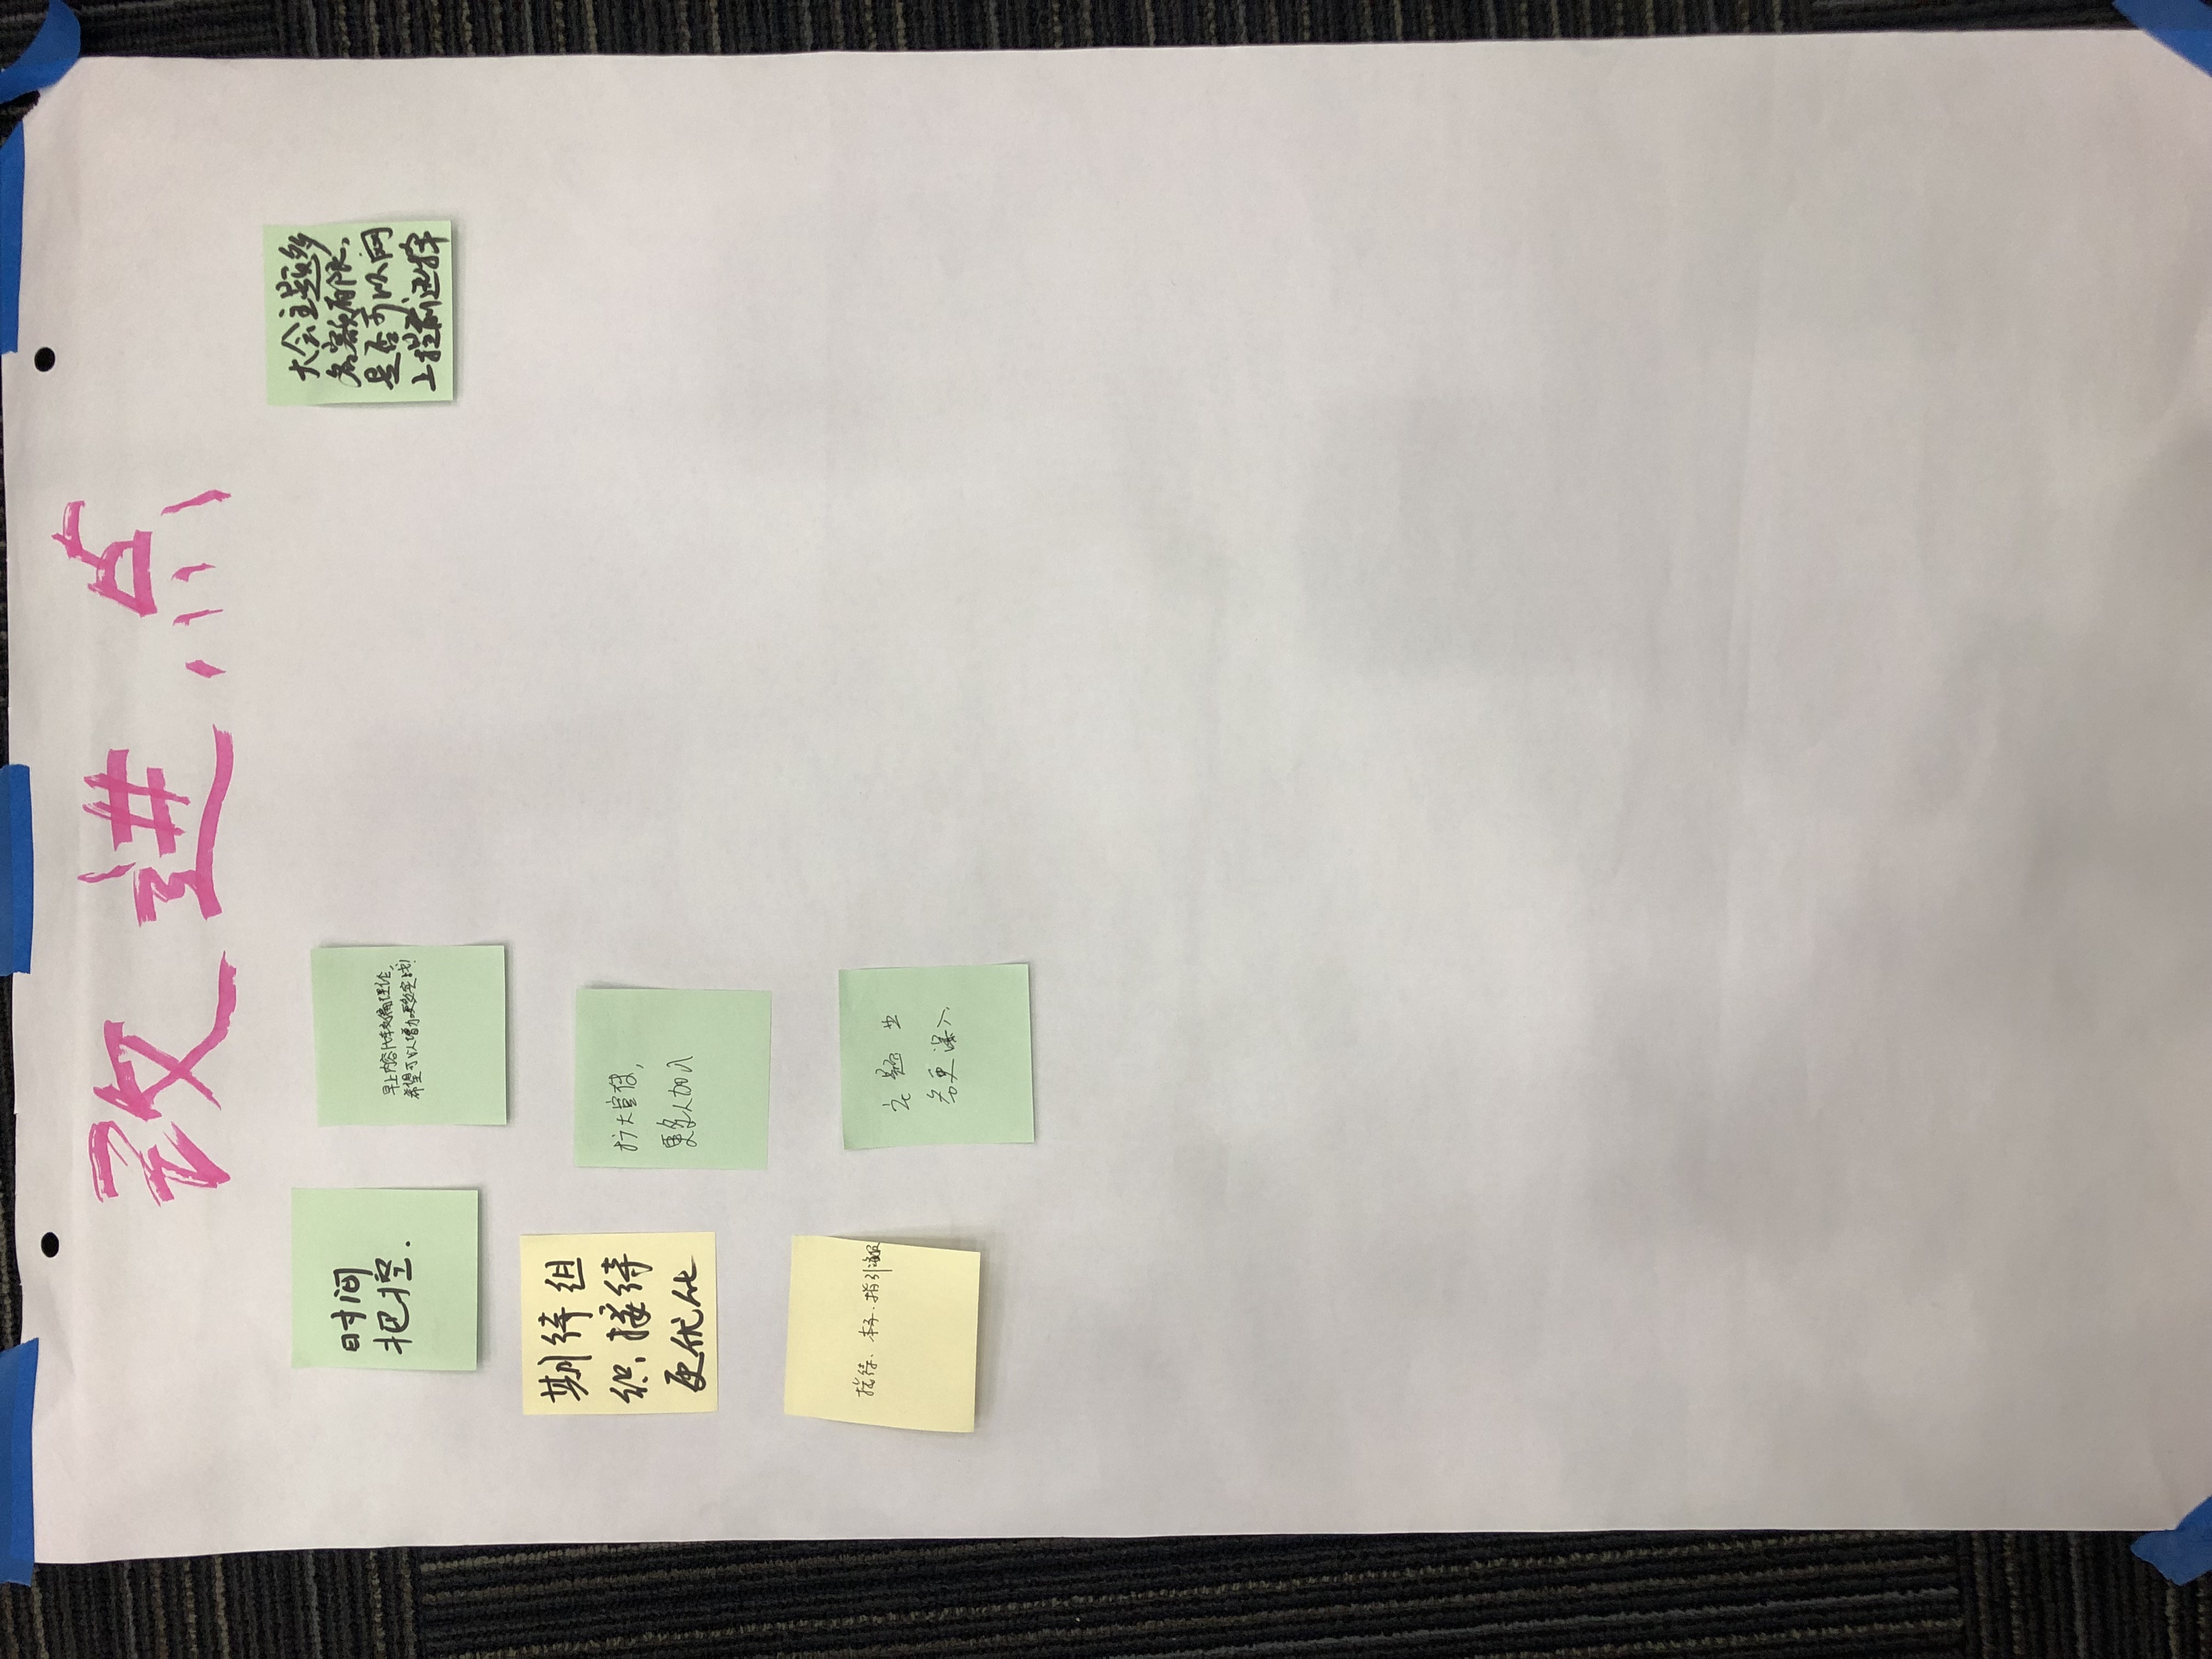 改进点
时间
把控.
早上内容比较偏理论,
希望可以增加更多实战!
大会主题多
名额有限,
是否可以网
上提前选择
期待组
织,接待
更优化
扩大宣传,
更多人加入
接待. 本子. 指引海报
主题
更深入